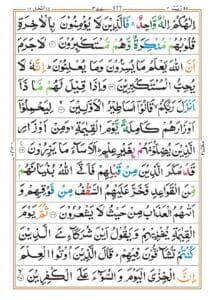 اِلٰهُكُمْ اِلٰهٌ وَّاحِدٌ ۚ فَالَّذِيْنَ لَا يُؤْمِنُوْنَ بِالْاٰخِرَةِ
قُلُوْبُهُمْ مُّنْكِرَةٌ وَّهُمْ مُّسْتَكْبِرُوْنَ ۝ لَا جَرَمَ
اَنَّ اللّٰهَ يَعْلَمُ مَا يُسِرُّوْنَ وَمَا يُعْلِنُوْنَ ؕ اِنَّهٗ لَا
يُحِبُّ الْمُسْتَكْبِرِيْنَ ۝ وَاِذَا قِيْلَ لَهُمْ مَّاذَاۤ
اَوْزَارَهُمْ كَامِلَةً يَّوْمَ الْقِيٰمَةِ ۙ وَمِنْ اَوْزَارِ
الَّذِيْنَ يُضِلُّوْنَهُمْ بِغَيْرِ عِلْمٍ ؕ اَلَا سَآءَ مَا يَزِرُوْنَ ۝
قَدْ مَكَرَ الَّذِيْنَ مِنْ قَبْلِهِمْ فَاَتَى اللّٰهُ بُنْيَانَهُمْ
مِّنَ الْقَوَاعِدِ فَخَرَّ عَلَيْهِمُ السَّقْفُ مِنْ فَوْقِهِمْ وَ
اَتٰىهُمُ الْعَذَابُ مِنْ حَيْثُ لَا يَشْعُرُوْنَ ۝ ثُمَّ يَوْمَ
الْقِيٰمَةِ يُخْزِيْهِمْ وَيَقُوْلُ اَيْنَ شُرَكَآءِيَ الَّذِيْنَ
كُنْتُمْ تُشَآقُّوْنَ فِيْهِمْ ؕ قَالَ الَّذِيْنَ اُوْتُوا الْعِلْمَ
اِنَّ الْخِزْيَ الْيَوْمَ وَالسُّوْٓءَ عَلَى الْكٰفِرِيْنَ ۝